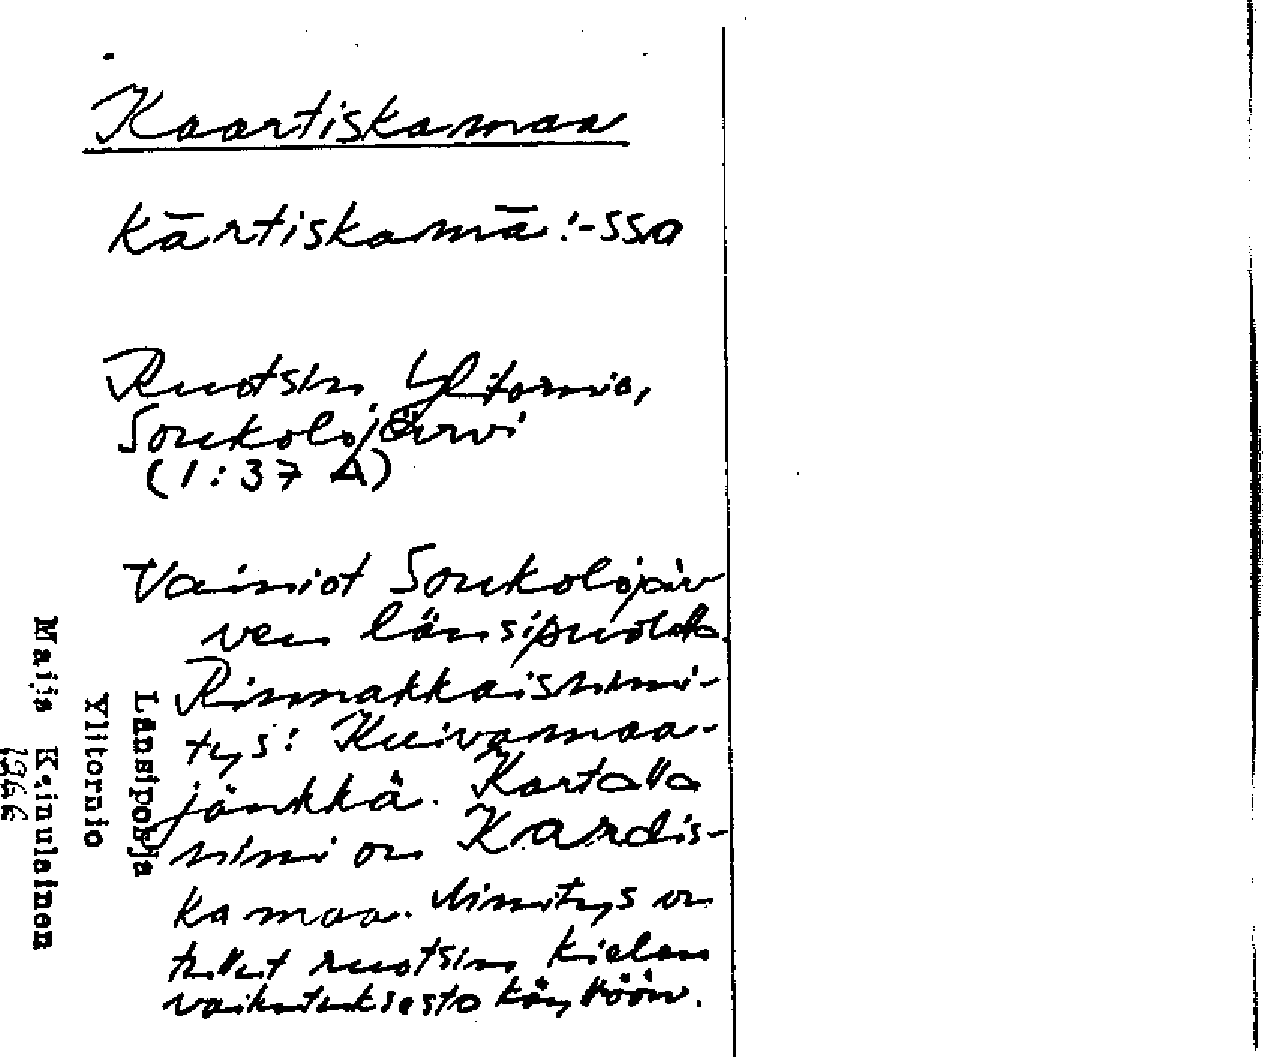 Kaartiskamaa
kārtiskamā: -ssa
Ruotsin Ylitornio,
Soukolojärvi
(1:37 A)
Vainiot Soukolojär
ven länsipuolella.
Rinnakkaisnimi-
tys: Kuivamaa-
jänkkä. Kartalla
nimi on Kardis-
kamaa. Nimitys on
tullut ruotsin kielen
vaikutuksesta käyttöön.
Länsipohja
Ylitornio
Maija Keinulainen
1966